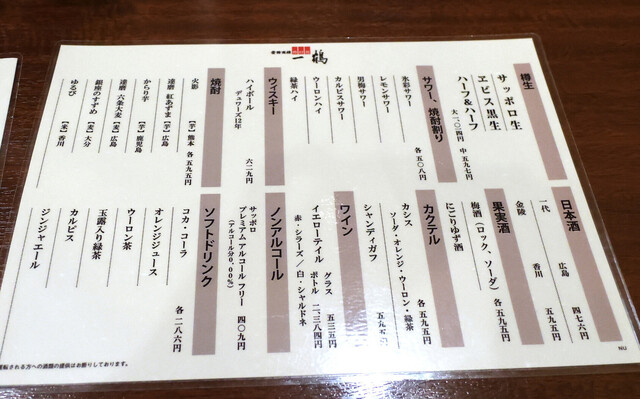 骨付鳥 一鶴
樽生
サッポロ生
ヱビス黒生
ハーフ&ハーフ
中 五九七円
大 一、〇四円
サワー、焼酎割り
氷彩サワー 各 五〇八円
レモンサワー
男梅サワー
カルピスサワー
ウーロンハイ
緑茶ハイ
ウィスキー
ハイボール 六二九円
デュワーズ12年
焼酎
火影 【芋】 熊本 各 五九五円
達磨 紅あずま 【芋】 広島
からり芋 【芋】 鹿児島
達磨 六条大麦 【麦】 広島
銀座のすずめ 【麦】 大分
ゆるび 【麦】 香川
日本酒
一代 広島 四七六円
金陵 香川
果実酒
梅酒(ロック、ソーダ) 各 五九五円
にごりゆず酒
カクテル 各 五九五円
カシス
ソーダ・オレンジ・ウーロン・緑茶
シャンディガフ 五九五円
ワイン
グラス 五三五円
イエローテイル ボトル 二、三八四円
赤・シラーズ/白・シャルドネ
ノンアルコール
サッポロ
プレミアムアルコール フリー 四〇九円
(アルコール分0.00%)
ソフトドリンク
コカ・コーラ 各 二八六円
オレンジジュース
ウーロン茶
玉露入り緑茶
カルピス
ジンジャエール
運転される方への酒類の提供はお断りしております。
NIU